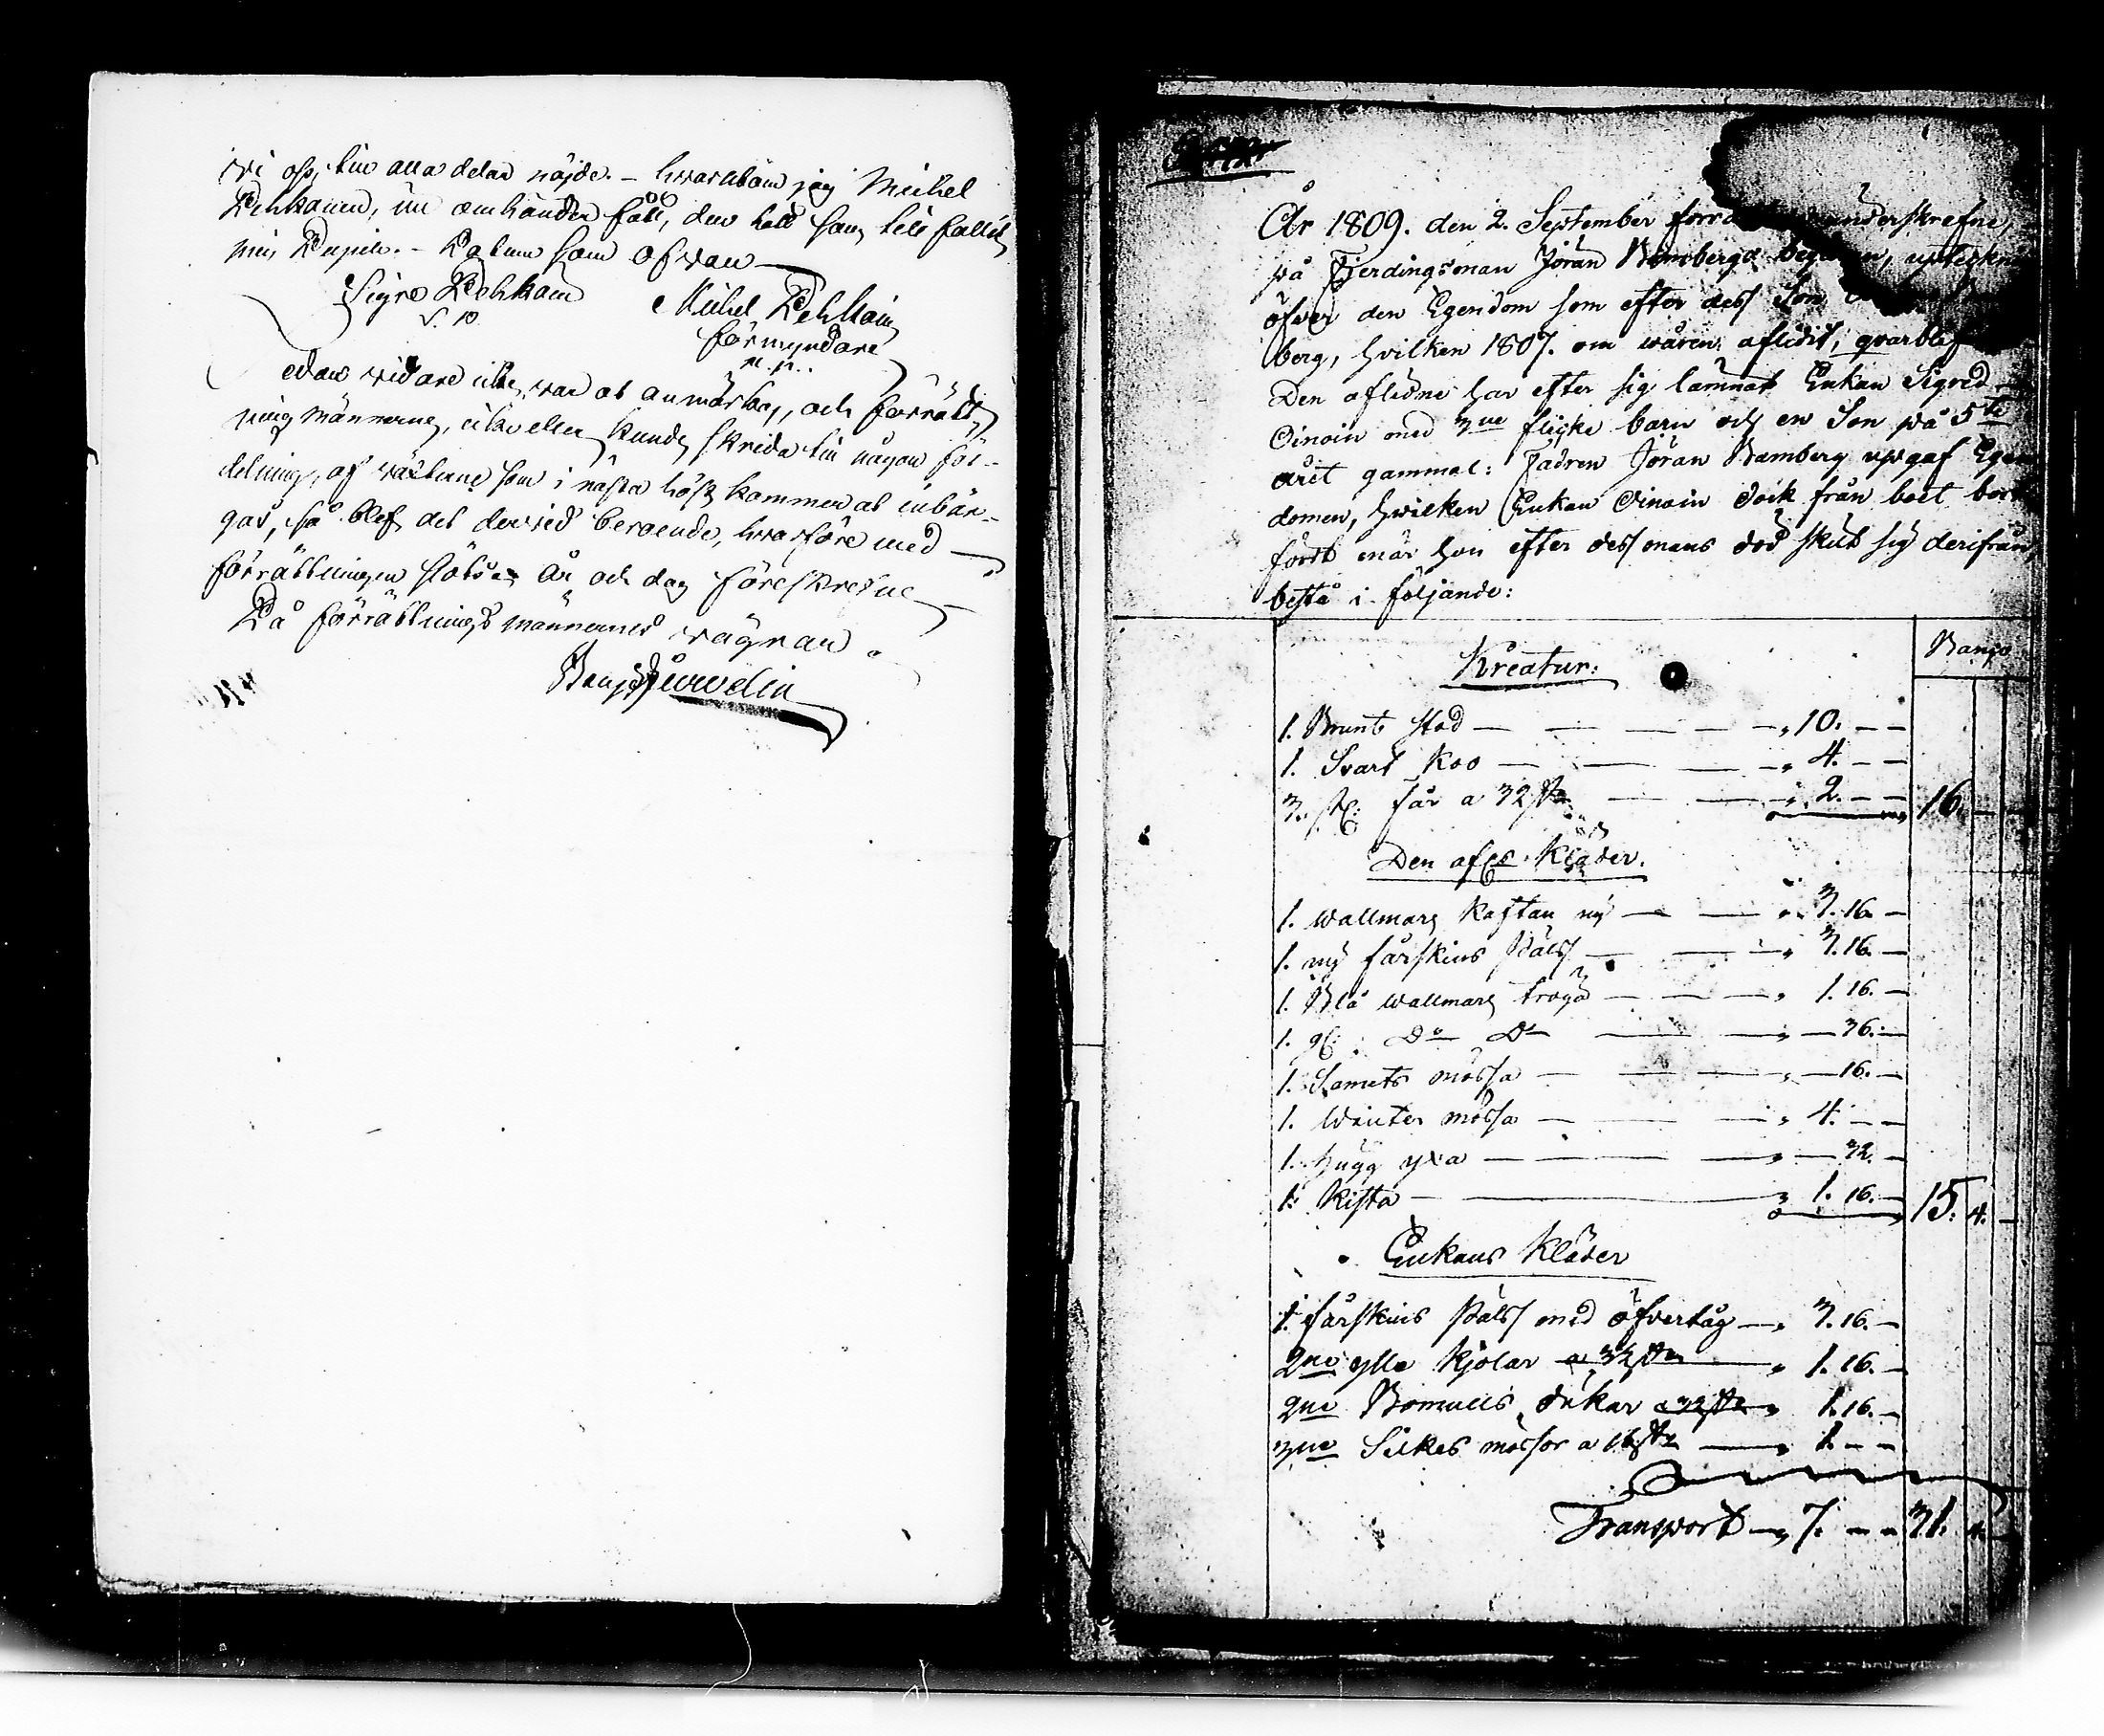 wi oss till alla delar nöjde. – hvarutom jag Michel
Pehkonen, un omhänder fått, den håll som till fallit
min Pupill. – Datum som ofvan
Sigre Pehkoin Michel Pehkoin
förmyndare
Som vidare icke var at anmärka, och förrätt-
ningsmännerne, icke eller kunde skrida till någon för-
delning, af växterne som i nästa höst kommer at inbär-
gas, så blef det dervid beroende, hvarföre med
förrättningen slöts År och dag föreskrefne
På förrättningsmännernes vägnar
År 1809. den 2. September underskrefne,
på Fjerdingsman Jöran Bambergs
öfver den Egendom som efter dess Son
berg, hvilken 1807. om våren aflidit, qvarblef
Den aflidne har efter sig lämnat Enkan Sigred
Oinoin med 3ne flicke barn och en Son på 5te
året gammal: Fadren Jöran Bamberg upgaf Egen
domen, hvilken Enkan Oinoin dock från boet bort
fördt när hon efter dess mans död skilt sig derifrån,
bestå i följande:
Kreatur: Banco
1. Brunt stod — „ 10. — —
1. Svart Koo — „ 4. — —
3. st: får a 32 — „ 2. — — 16. — —
Den afls Kläder.
1. wallmars Kaftan ny — „ 3. 16. —
1. ny fårskins Päls — „ 3. 16. —
1. Blå wallmars tröga — „ 1. 16. —
1. gl: Do Do — „ — 36. —
1. Samets mössa — „ — 16. —
1. Winter mössa — „ 4. — —
1. hugg yxa — „ — 32. —
1. Kista — „ 1. 16. — 15. 4. —
Enkans Kläder
1. fårskins Päls med öfvertåg — „ 3. 16. —
2ne ylle Kjolar a 32 — „ 1. 16. —
2ne Bomuls dukar a 32 „ 1. 16. —
3ne Silkes mössor a 16 — „ 1. — —
Transport — „ 7. — — 31. 4. —